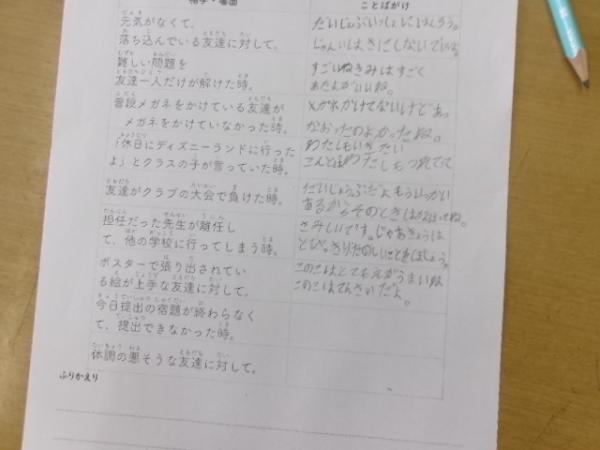 相手・場面
ことばがけ
元気がなくて、
落ち込んでいる友達に対して。
だいじょぶいっしょに
じゃんけいしは きにしないでいいよ。
難しい問題を
友達一人だけが解けた時。
すごいねきみはすごく
あたまがいいね。
普段メガネをかけている友達が
メガネをかけていなかった時。
メガネかけてないけどあ
なおったのよかったね。
「休日にディズニーランドに行った
よ」とクラスの子が言っていた時。
わたしもいきたい
こんどはわたしもつれてて
友達がクラブの大会で負けた時。
だいじょうぶだよもういっかい
あるからそのときはがんばってね。
担任だった先生が離任し
て、他の学校に行ってしまう時。
さみしいです。じゃあきょうは
とびっきりたのしいことをしましょう。
ポスターで張り出されてい
る絵が上手な友達に対して。
このこはとてもえがうまいね
このこはてんさいだよ。
今日提出の宿題が終わらなく
て、提出できなかった時。
体調の悪そうな友達に対して。
ふりかえり